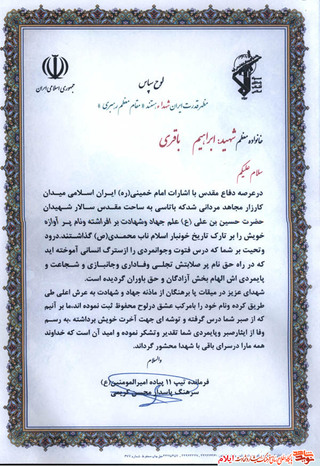 جمهوری اسلامی ایران
لوح سپاس
مظهر قدرت ایران شهداء هستند « مقام معظم رهبری »
خانواده معظم شهید: ابراهیم باقری
سلام علیکم
درعرصه دفاع مقدس با اشارات امام خمینی(ره) ایران اسلامی میدان
کارزار مجاهد مردانی شدکه باتاسی به ساحت مقدس سالار شهیدان
حضرت حسین بن علی (ع) علم جهاد وشهادت بر افراشته ونام پر آوازه
خویش را بر تارک تاریخ خونبار اسلام ناب محمدی(ص) گذاشتند.درود
وتحیت بر شما که درس فتوت وجوانمردی را ازسترگ انسانی آموخته اید
که در راه حق نام پر صلابتش تجلی وفاداری وجانبازی و شجاعت و
پایمردی اش الهام بخش آزادگان و حق باوران گردیده است.
شهدای عزیز در میقات پا برهنگان از ماذنه جهاد و شهادت به عرش اعلی طی
طریق کرده ونام خود را بامرکب عشق درلوح محفوظ ثبت نموده اندما بر آنیم
که از صبر شما درس گرفته و توشه ای جهت آخرت خویش برداشته ،به رسم
وفا از ایثارصبر وپایمردی شما تقدیر وتشکر نموده و امید آن است که خداوند
همه مارا درسرای باقی با شهدا محشور گرداند.
والسلام
فرمانده تیپ ۱۱ پیاده امیرالمومنین(ع)
سرهنگ پاسدار محسن کریمی
ایلام